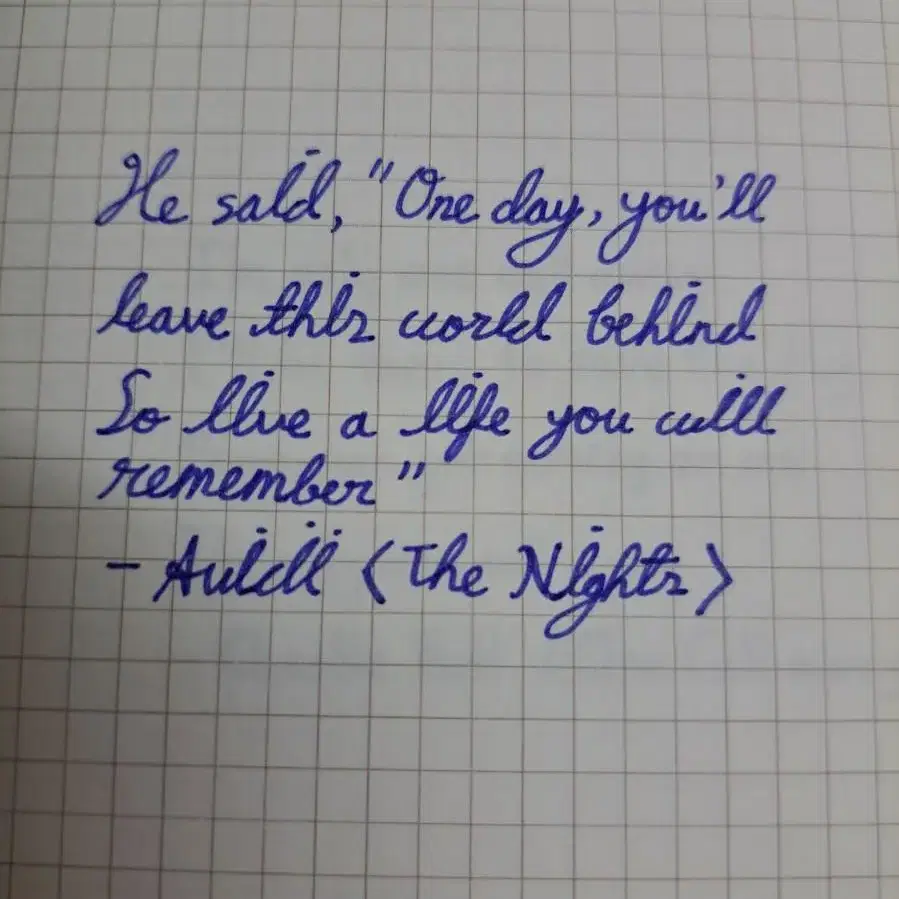 He said, "One day, you'll
leave this world behind
So live a life you will
remember"
- Avicii <The Nights>